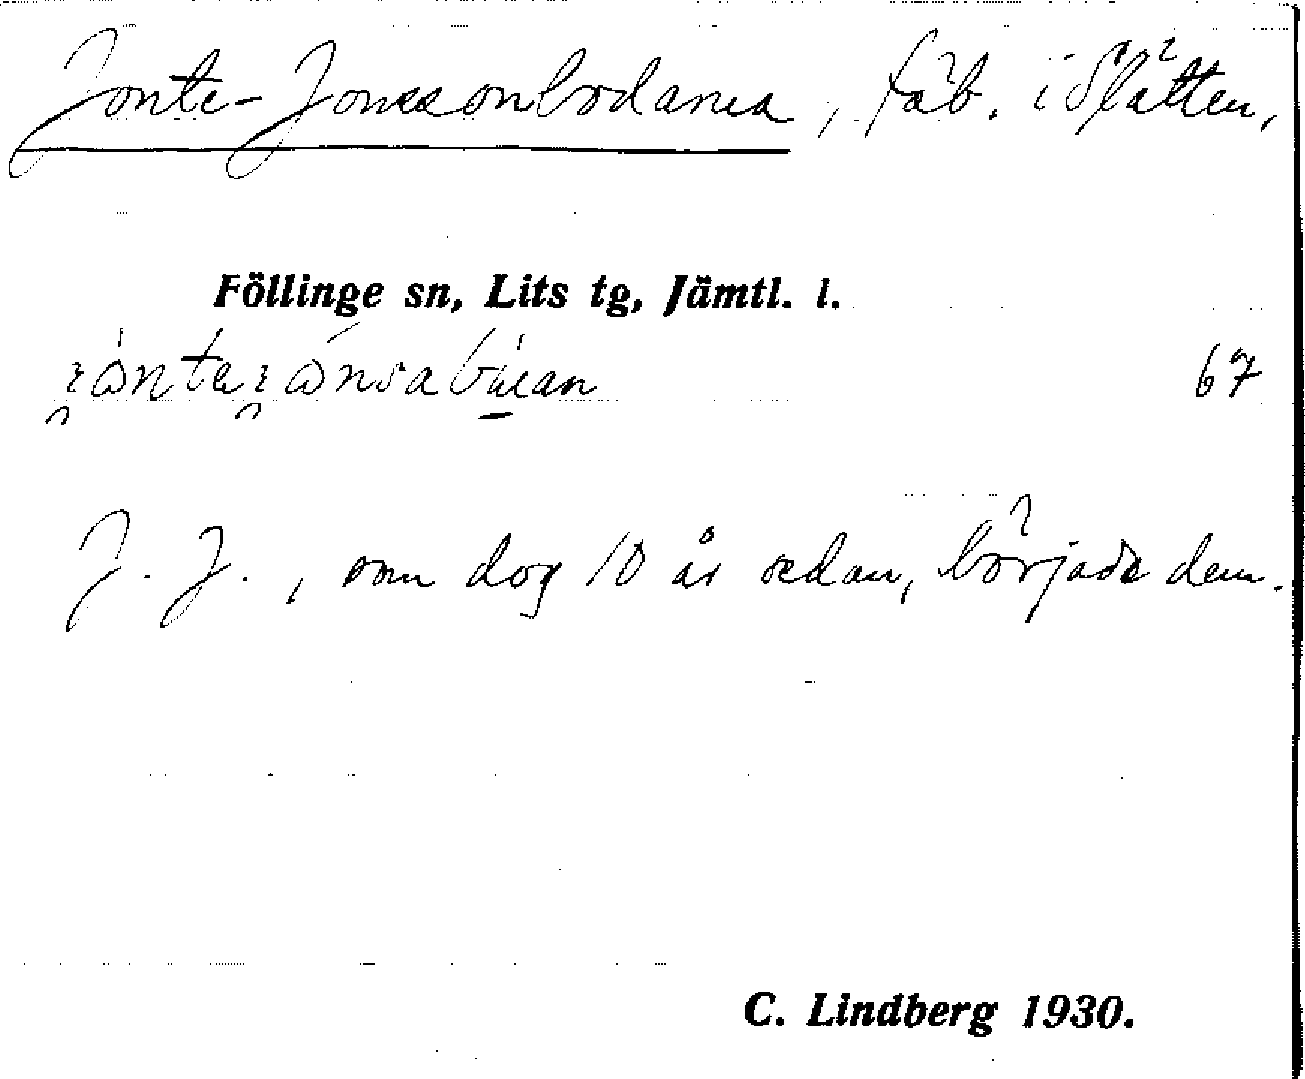 Jonte-Jonssonbodarna, fäb. i Slåtten,
Föllinge sn, Lits tg, Jämtl. l.
67
J. J., som dog 10 år sedan, började dem.
C. Lindberg 1930.